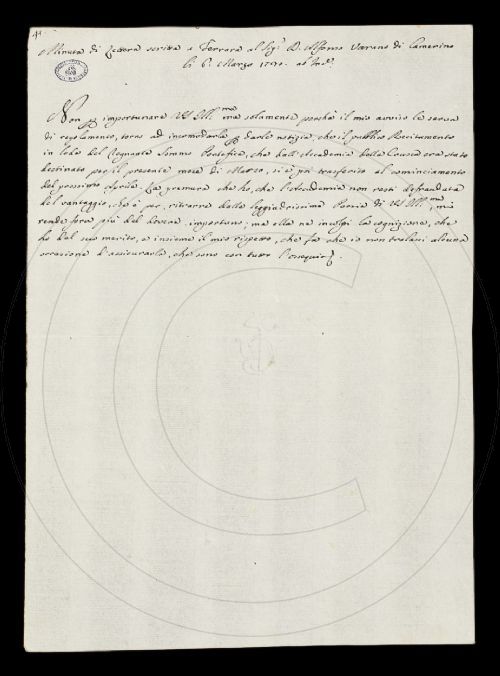 Minuta di Lettera scritta a Ferrara al Sig.r D. Alfonso Varano di Camerino
li 6. Marzo
Non importunare VS Ill.ma ma solamente perchè il mio avviso le serva
di regolamento, torno ad incomodarla darle notizia, che il pubblico Recitamento
in lode del Regnante Sommo Pontefice, che dall'Accademia della Crusca era stato
destinato per il presente mese di Marzo, si è poi trasferito al cominciamento
del prossimo Aprile. La premura che ho, che l'Accademia non resti defraudata
del vantaggio, che è per ritrarre dalla leggiadrissima Poesia di VS Ill.ma, mi
rende forse più del dovere importuno; ma ella ne incolpi la cognizione, che
ho del suo merito, e insieme il mio rispetto, che fa che io non tralasci alcuna
occasione d'assicurarla, che sono con tutto l'ossequio